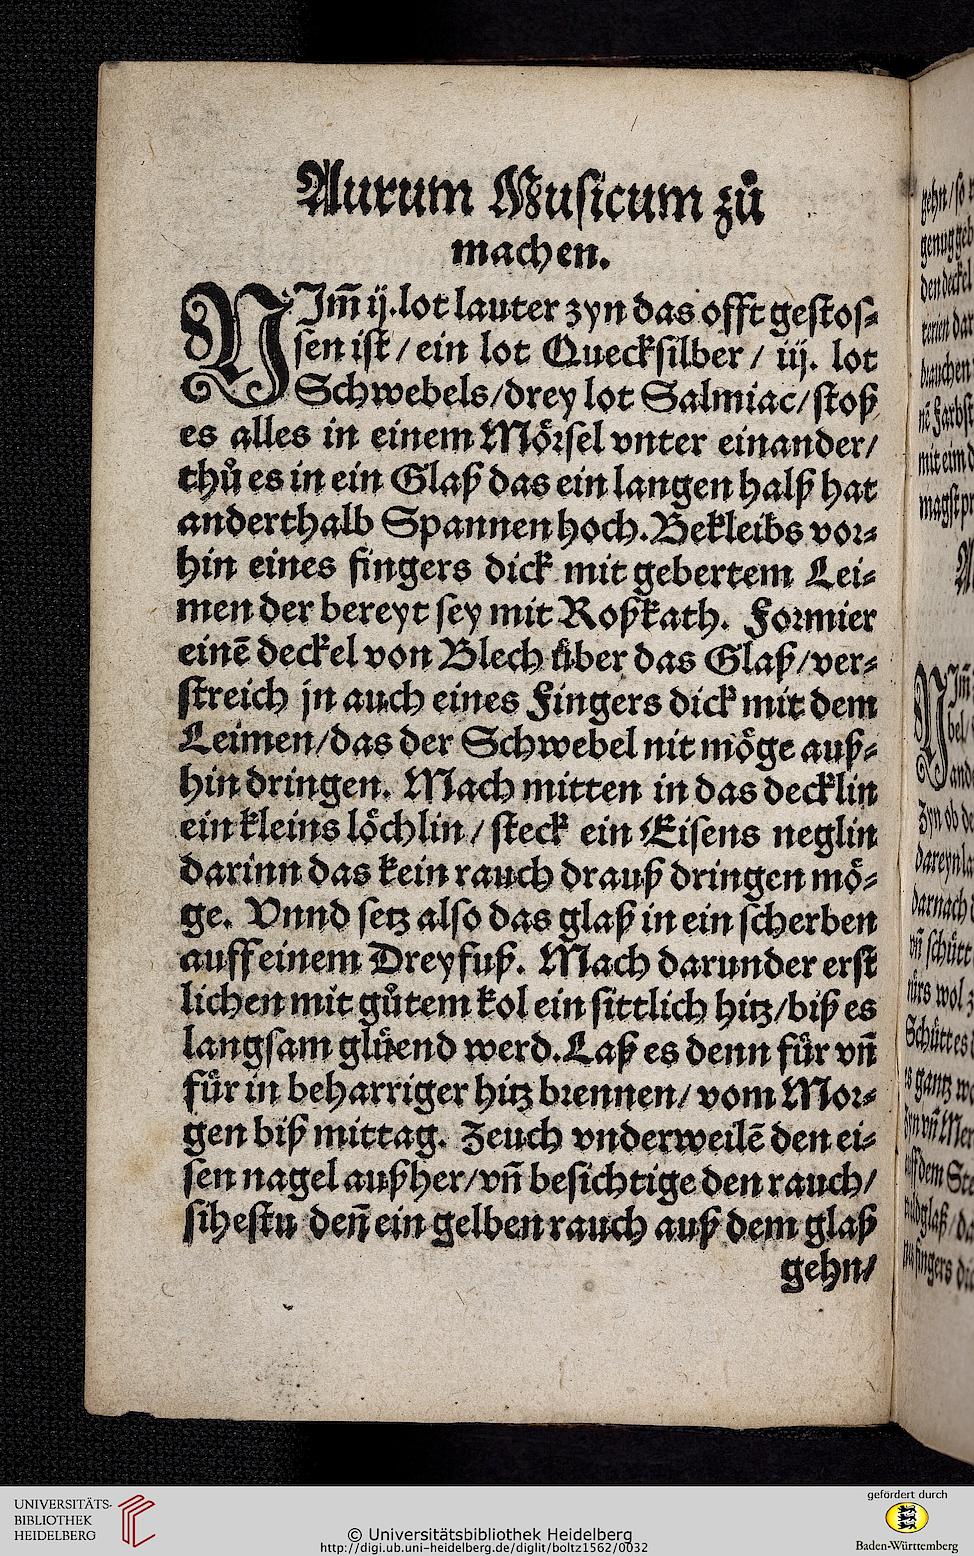 Aurum Musicum zů
machen.
NJm̃ ij. lot lauter zyn das offt gestos⸗
sen ist / ein lot Quecksilber / iij. lot
Schwebels / drey lot Salmiac / stoß
es alles in einem Mörsel vnter einander /
thů es in ein Glaß das ein langen halß hat
anderthalb Spannen hoch. Bekleibs vor⸗
hin eines fingers dick mit gebertem Lei⸗
men der bereyt sey mit Roßkath. Formier
einẽ deckel von Blech über das Glaß / ver⸗
streich jn auch eines Fingers dick mit dem
Leimen / das der Schwebel nit möge auß⸗
hin dringen. Mach mitten in das decklin
ein kleins löchlin / steck ein Eisens neglin
darinn das kein rauch drauß dringen mö⸗
ge. Vnnd setz also das glaß in ein scherben
auff einem Dreyfuß. Mach darunder erst
lichen mit gůtem kol ein sittlich hitz / biß es
langsam glüend werd. Laß es denn für vñ
für in beharriger hitz brennen / vom Mor⸗
gen biß mittag. Zeuch vnderweilẽ den ei⸗
sen nagel außher / vñ besichtige den rauch /
sihestu deñ ein gelben rauch auß dem glaß
gehn /
gehn / so
den deckel
brauchen
UNIVERSITÄTS-
BIBLIOTHEK
HEIDELBERG
© Universitätsbibliothek Heidelberg
http://digi.ub.uni-heidelberg.de/diglit/boltz1562/0032
gefördert durch
Baden-Württemberg